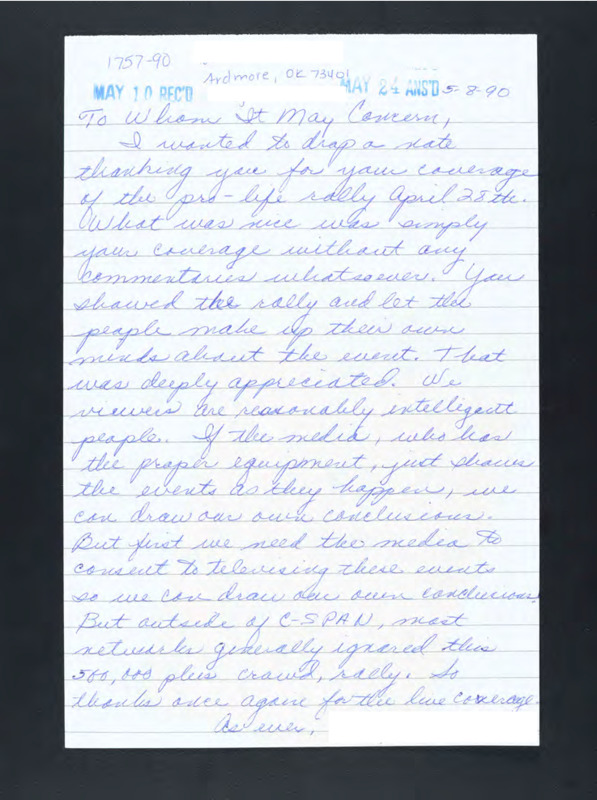 1757-90
Ardmore, OK 73401
MAY 10 REC'D
MAY 24 ANS'D 5-8-90
To Whom It May Concern,
I wanted to drop a note
thanking you for your coverage
of the pro-life rally April 28th.
What was nice was simply
your coverage without any
commentaries whatsoever. You
showed the rally and let the
people make up their own
minds about the event. That
was deeply appreciated. We
viewers are reasonably intelligent
people. If the media, who has
the proper equipment, just shows
the events as they happen, we
can draw our own conclusions.
But first we need the media to
consent to televising these events
so we can draw our own conclusions.
But outside of C-SPAN, most
networks generally ignored this
500,000 plus crowd, rally. So
thanks once again for the live coverage.
As ever,